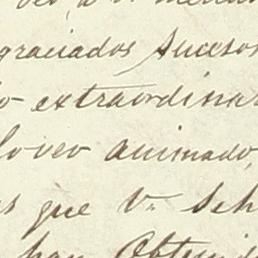 graciados sucesos
o extraordinar
lo veo animado,
s que V. Sch
han Obteni